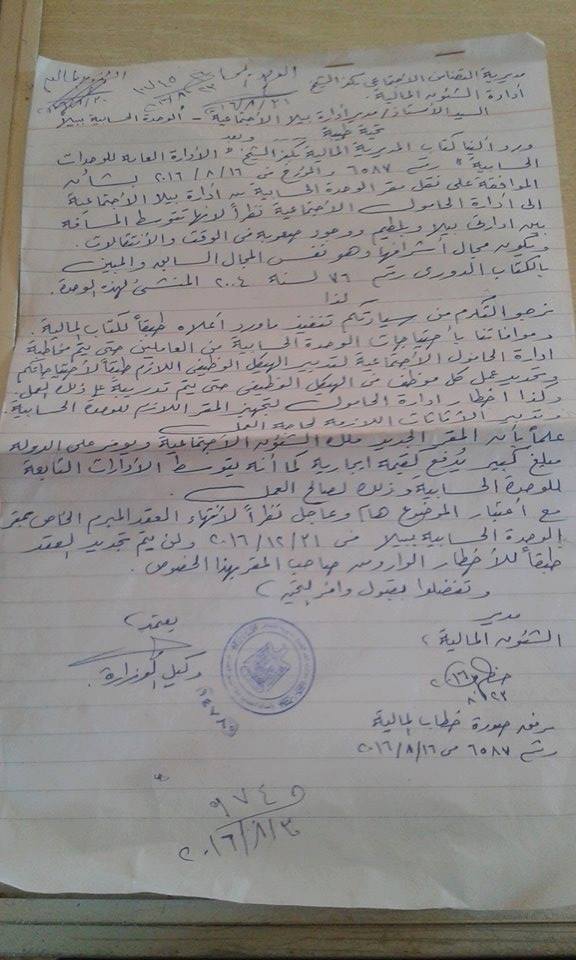 مديرية التضامن الاجتماعى بكفر الشيخ
أدارة الشئون المالية.
٢٠١٦/٨/٢١
السيد الأستاذ/ مدير أدارة بيلا الأجتماعية - الوحدة الحسابية ببيلا
تحية طيبة وبعد
ورد ألينا كتاب المديرية المالية بكفر الشيخ "الأدارة العامة للوحدات
الحسابية" رقم ٦٥٨٧ والمؤرخ فى ٢٠١٦/٨/١٦ بشأن
الموافقة على نقل مقر الوحدة الحسابية من أدارة بيلا الأجتماعية
الى أدارة الحامول الأجتماعية نظراً لأنها تتوسط المسافة
بين ادارتى بيلا وبلطيم ووجود صعوبة فى الوقت والأنتقالات.
ويكون مجال أشرافها وهو نفس المجال السابق والمبين
بالكتاب الدورى رقم ٧٦ لسنة ٢٠٠٤ المنشئ لهذه الوحدة.
لذا
نرجو التكرم من سيادتكم تنفيذ ماورد أعلاه طبقاً لكتاب المالية.
وموافاتنا بأحتياجات الوحدة الحسابية من العاملين حتى يتم مخاطبة
ادارة الحامول الأجتماعية لتدبير الهيكل الوظيفى اللازم طبقاً لأحتياجاتكم
وتحديد عمل كل موظف من الهيكل الوظيفى حتى يتم تدريبة على ذلك العمل.
وكذا أخطار ادارة الحامول لتجهيز المقر اللازم للوحدة الحسابية
وتدبير الأثاثات اللازمة لحاجة العمل
علماً بأن المقر الجديد ملك الشئون الأجتماعية ويوفر على الدولة
مبلغ كبير يُدفع كقيمة ايجارية كما أنه يتوسط الأدارات التابعة
للوحدة الحسابية وذلك لصالح العمل.
مع اعتبار الموضوع هام وعاجل نظراً لأنتهاء العقد المبرم الخاص بمقر
الوحدة الحسابية ببيلا فى ٢٠١٦/١٢/٢١ ولن يتم تجديد العقد
طبقاً للأخطار الوارد من صاحب المقر بهذا الخصوص.
وتفضلوا بقبول وافر التحية
مدير
الشئون المالية
يعتمد
وكيل الوزارة
مرفق صورة خطاب المالية
رقم ٦٥٨٧ فى ٢٠١٦/٨/١٦